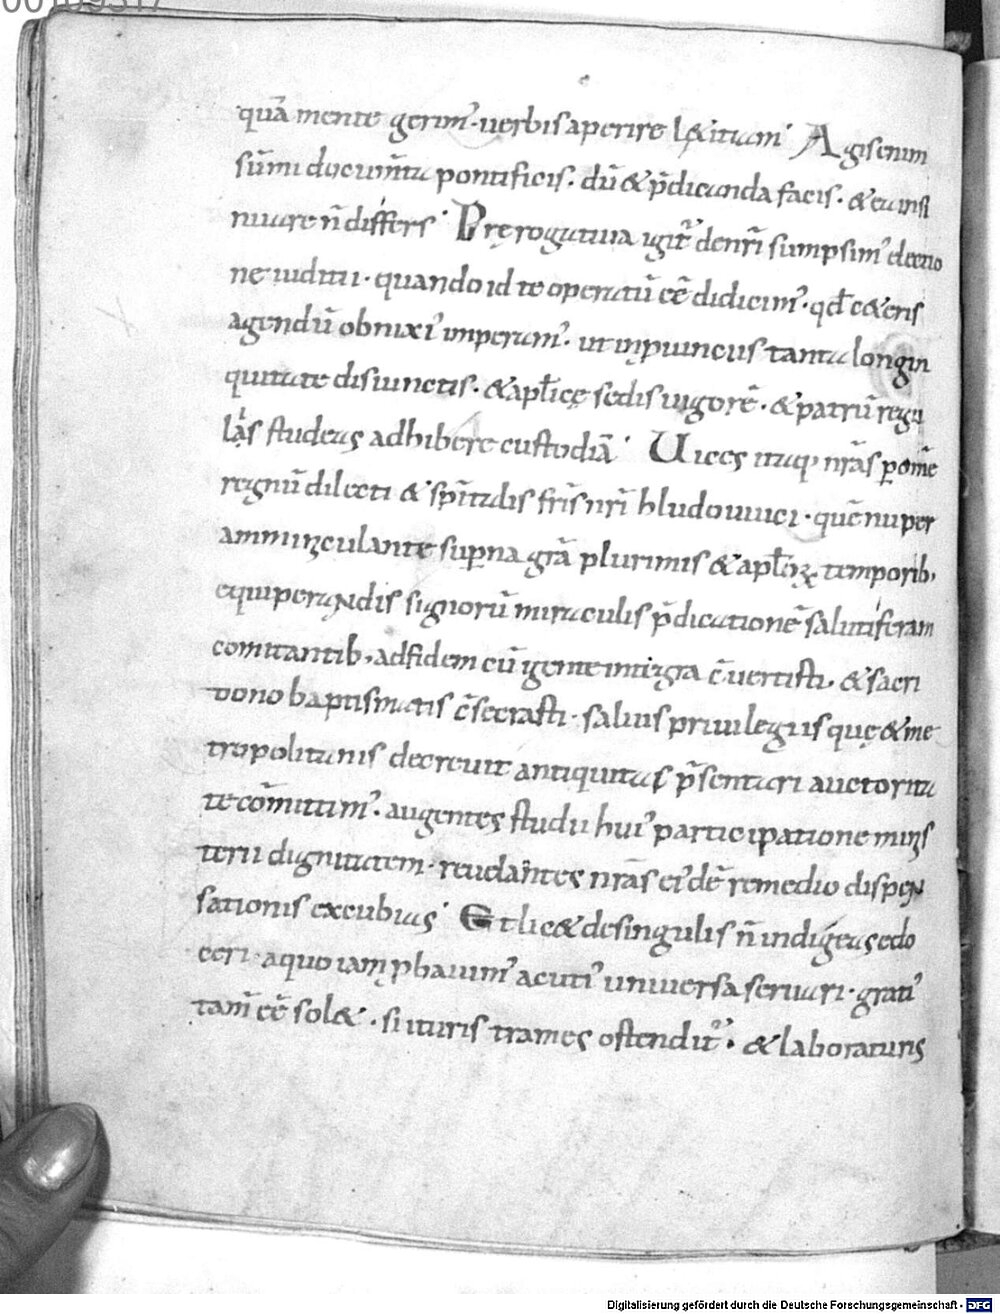 quā mente gerim᾽ verbis aperire lætitiam. Agis enim
sūmi documn̄ta pontificis. dū & p̄dicanda facis. & ea insi
nuare n̄ differs. Prerogativa igit̄ denr̄i sumpsim᾽ electio
ne iuditii. quando id te operatū eē didicim᾽. qđ cæteris
agendū obnixi᾽ imperam᾽. ut inpuinciis tanta longin
quitate disiunctis. & apłicę sedis vigorē. & patrū regu
las studeas adhibere custodiā. Vices itaq; nr̄as p omē
regnū dilecti & sp̄italis fr̄is nr̄i hludouuici. quē nuper
amminiculante superna grā plurimis & apłoꝝ temporib;
equiperandis signorū miraculis p̄dicationē salutiferam
comitantib; ad fidem cū gente integra c̄vertisti. & sacri
dono baptismatis c̄secrasti. salvis privilegiis quę & me
tropolitanis decrevit antiquitas p̄sentari auctorita
te cōmittim᾽. augentes studii hui᾽ participatione minis
terii dignitatem. relevantes nr̄as ei᾽dē remedio dispen
sationis excubias. Et licæ de singulis n̄ indigeas edo
ceri. a quo iam phavim᾽ acuti᾽ universa servari. grati᾽
tam̄ eē solæ. si ituris trames ostendit᾽. & laboraturis
00109317
Digitalisierung gefördert durch die Deutsche Forschungsgemeinschaft - DFG